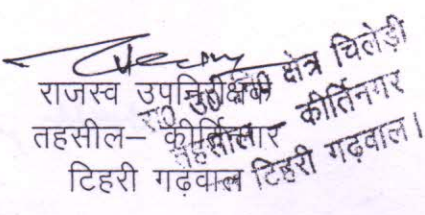 राजस्व उपनिरीक्षक
तहसील- कीर्तिनगर
टिहरी गढ़वाल
रा0 उ0 नि0 क्षेत्र चिलेड़ी
तहसील- कीर्तिनगर
टिहरी गढ़वाल।